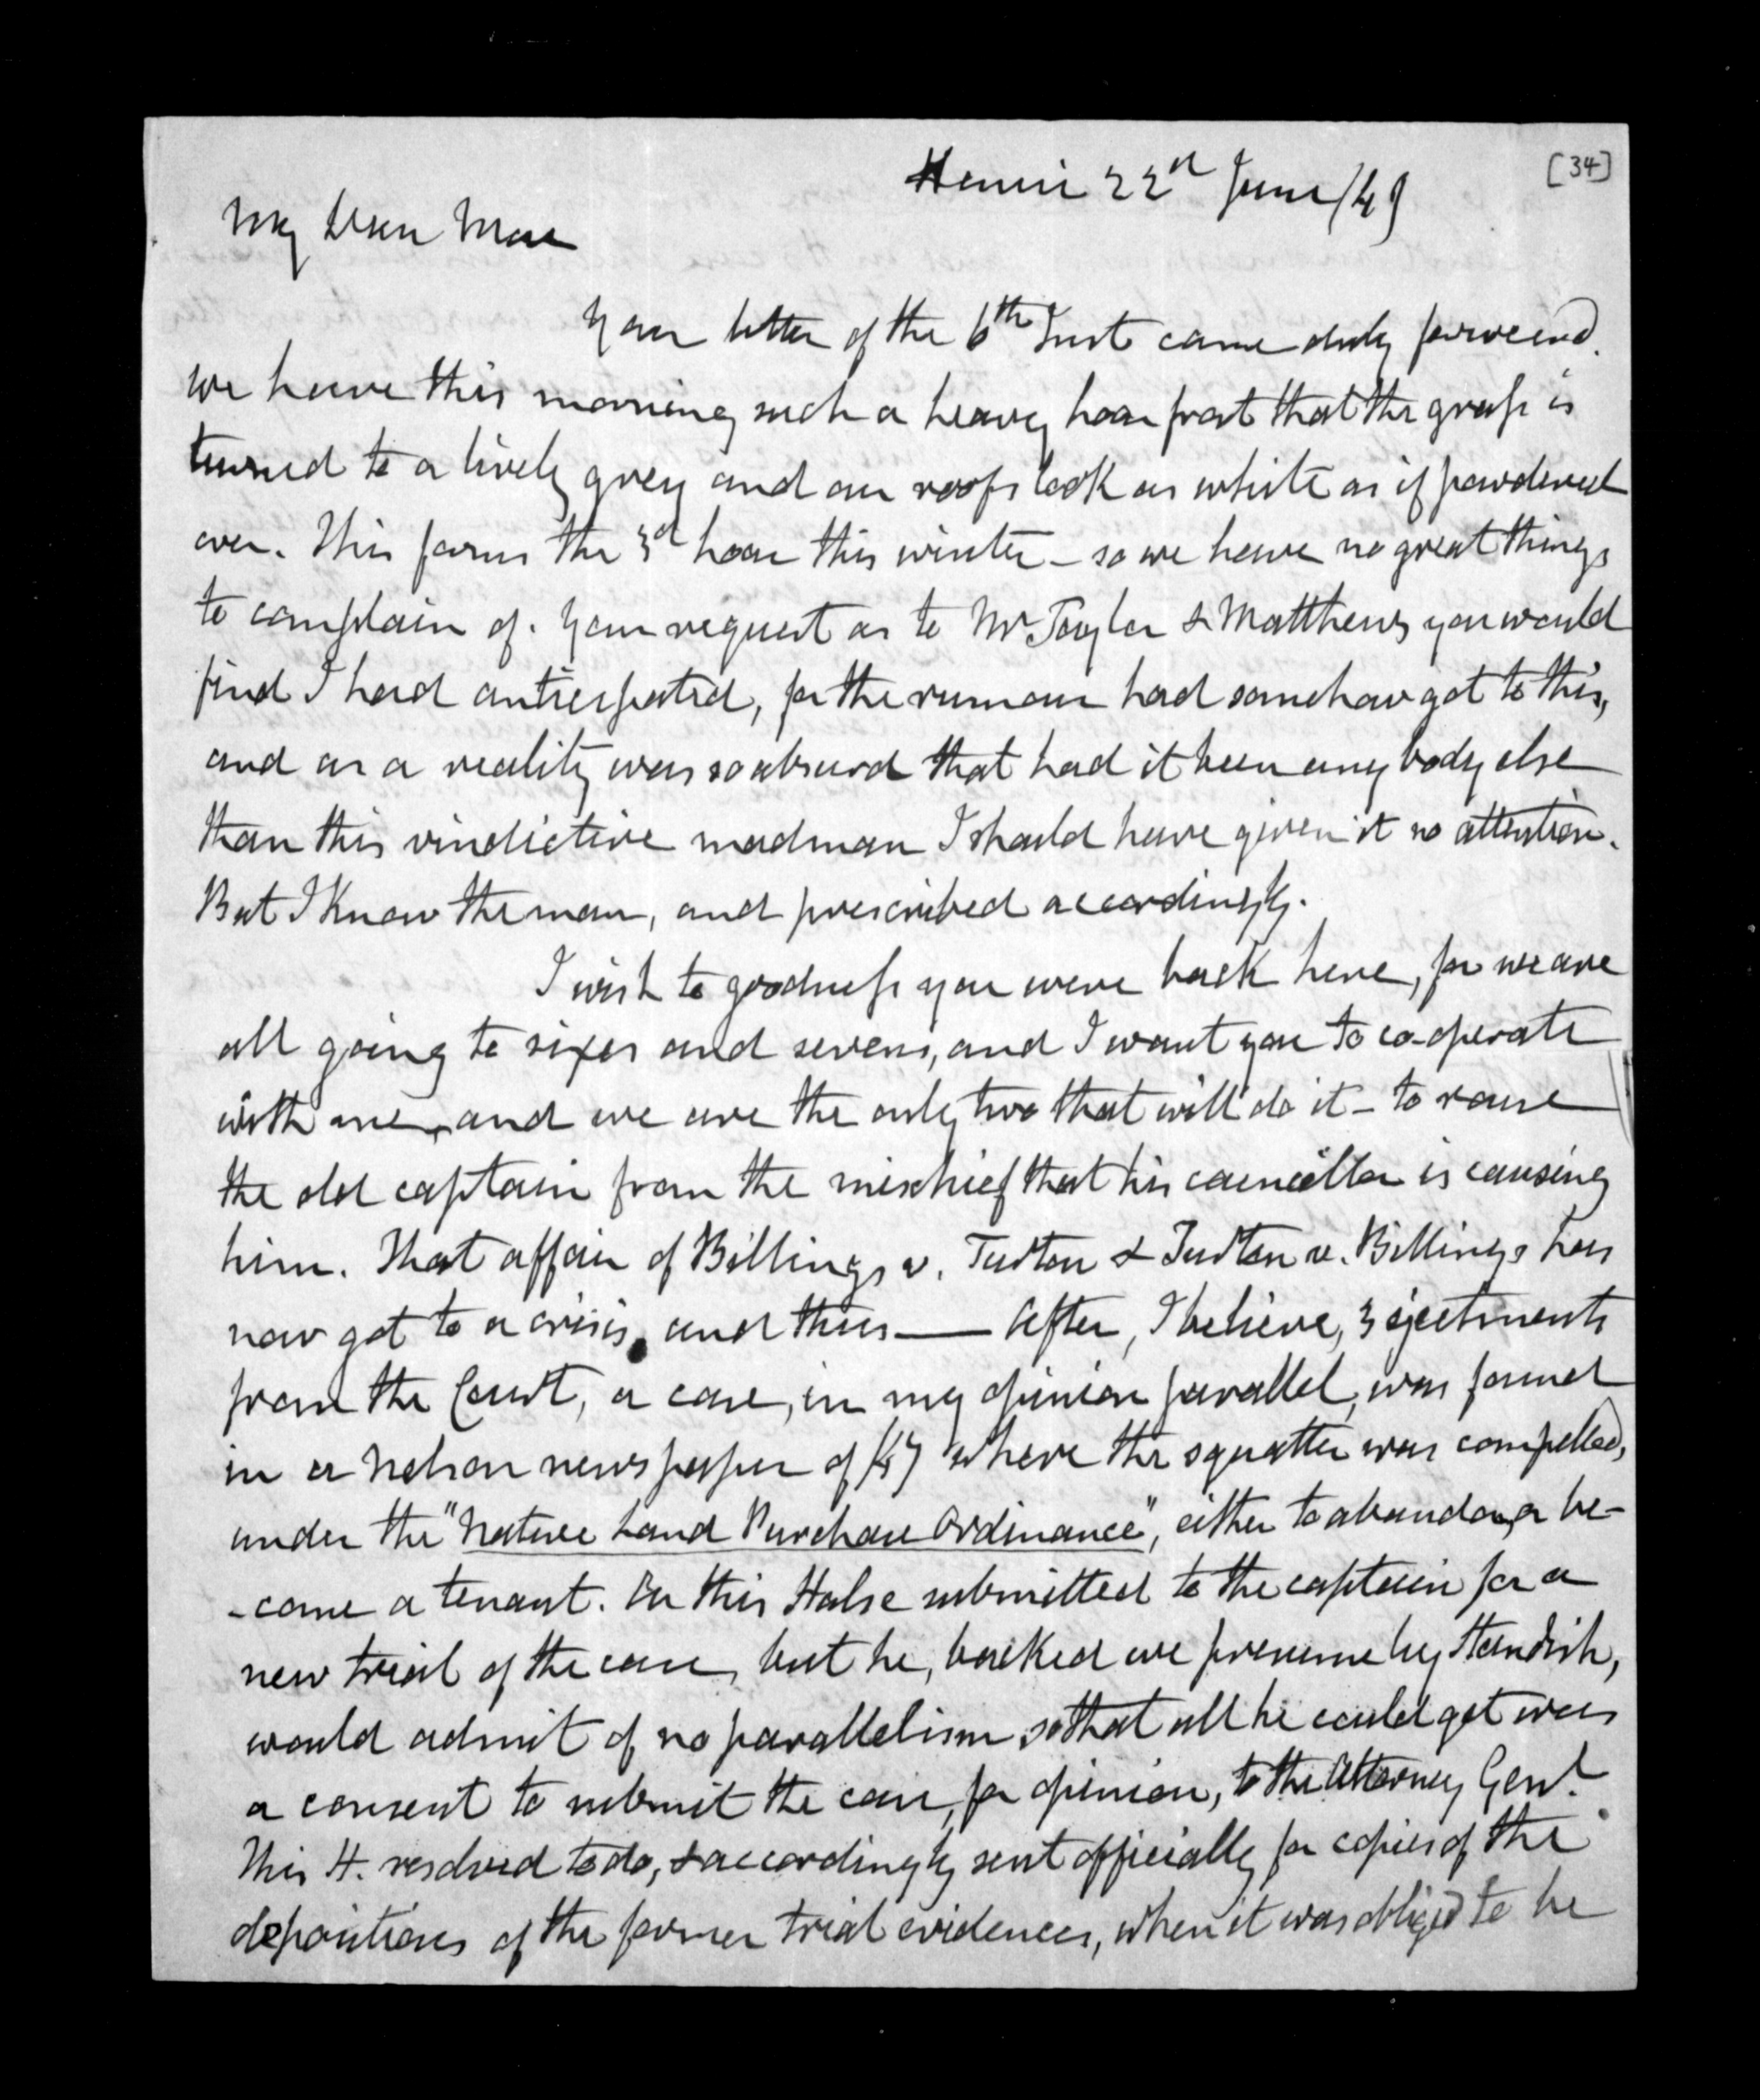 [34]
Henui 22nd June /49
My Dear Mac
Your letter of the 6th Inst came duly forward.
We have this morning such a heavy hoar frost that the grass is
turned to a lively grey and our roofs look as white as if powdered
over. This forms the 3d hoar this winter - so we have no great things
to complain of. Your request as to Mr Taylor & Matthews you would
find I had anticipated, for the rumour had somehow got to this,
and as a reality was so absurd that had it been any body else
than this vindictive madman I should have given it no attention.
But I know the man, and prescribed accordingly.
I wish to goodness you were back here, for we are
all going to sixes and sevens, and I want you to co-operate
with me, and we are the only two that will do it - to rouse
the old captain from the mischief that his councillor is causing
him. That affair of Billings v. Tudton & Tudton v. Billings has
now got to a crisis, and thus — After, I believe, 3 ejectments
from the Court, a case, in my opinion parallel, was found
in a Nelson newspaper of /47 where the squatter was compelled,
under the "Native Land Purchase Ordinance", either to abandon, or be-
-come a tenant. On this Halse submitted to the captain for a
new trial of the case, but he, backed we presume by Standish,
would admit of no parallelism, so that all he could get was
a consent to submit the case, for opinion, to the Attorney Genl.
This H. resolved to do, & accordingly sent officially for copies of the
depositions of the former trial evidences, when it was obliged to be